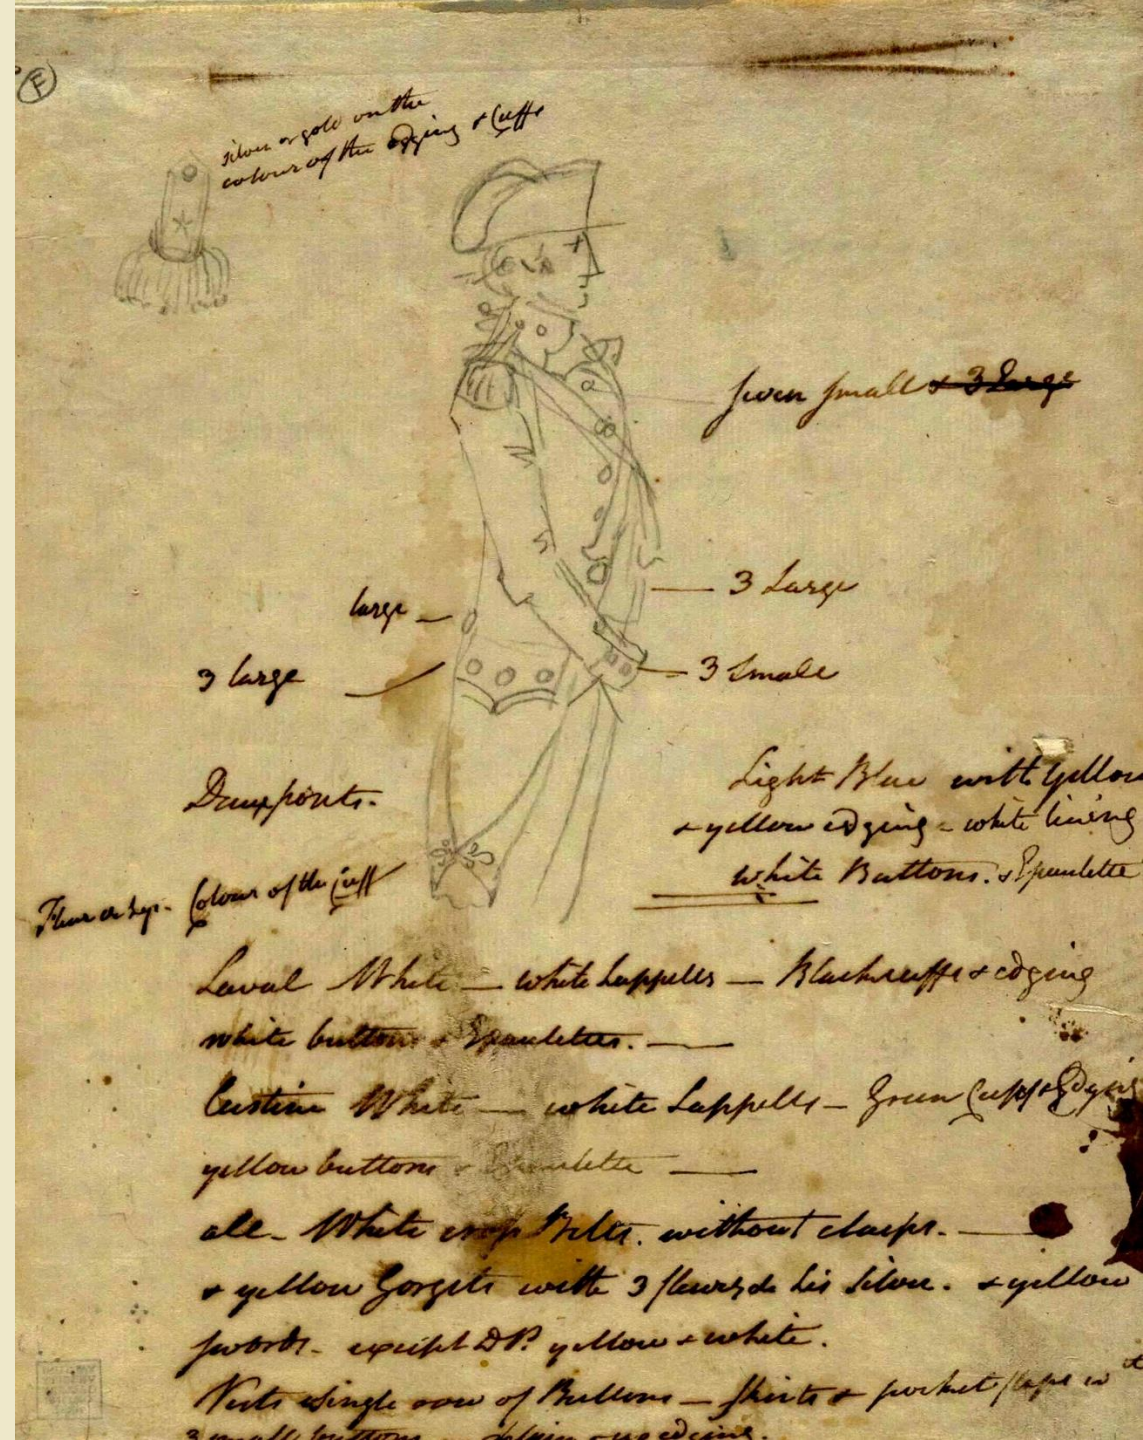 F
silver or gold on the
colour of the edging & Cuffs
seven small & 3 Large
3 Large
large
3 large
3 Small
Deuxponts.
Light Blue with yellow
& yellow edging - white lining
white Buttons. & Epaulette
Fleur de Lys. Colour of the Cuff
Laval White — white Lappells — Black cuffs & edging
white buttons & Epaulettes. —
Custine White — white Lappells — Green Cuffs & Edging
yellow buttons & Epaulette —
all - White cross Belts. without clasps. —
& yellow Gorgets with 3 fleurs de Lis Silver. & yellow
swords - except DP. yellow & white.
Vests single row of Buttons — skirts & pocket flaps wt
3 small buttons plain no edging.